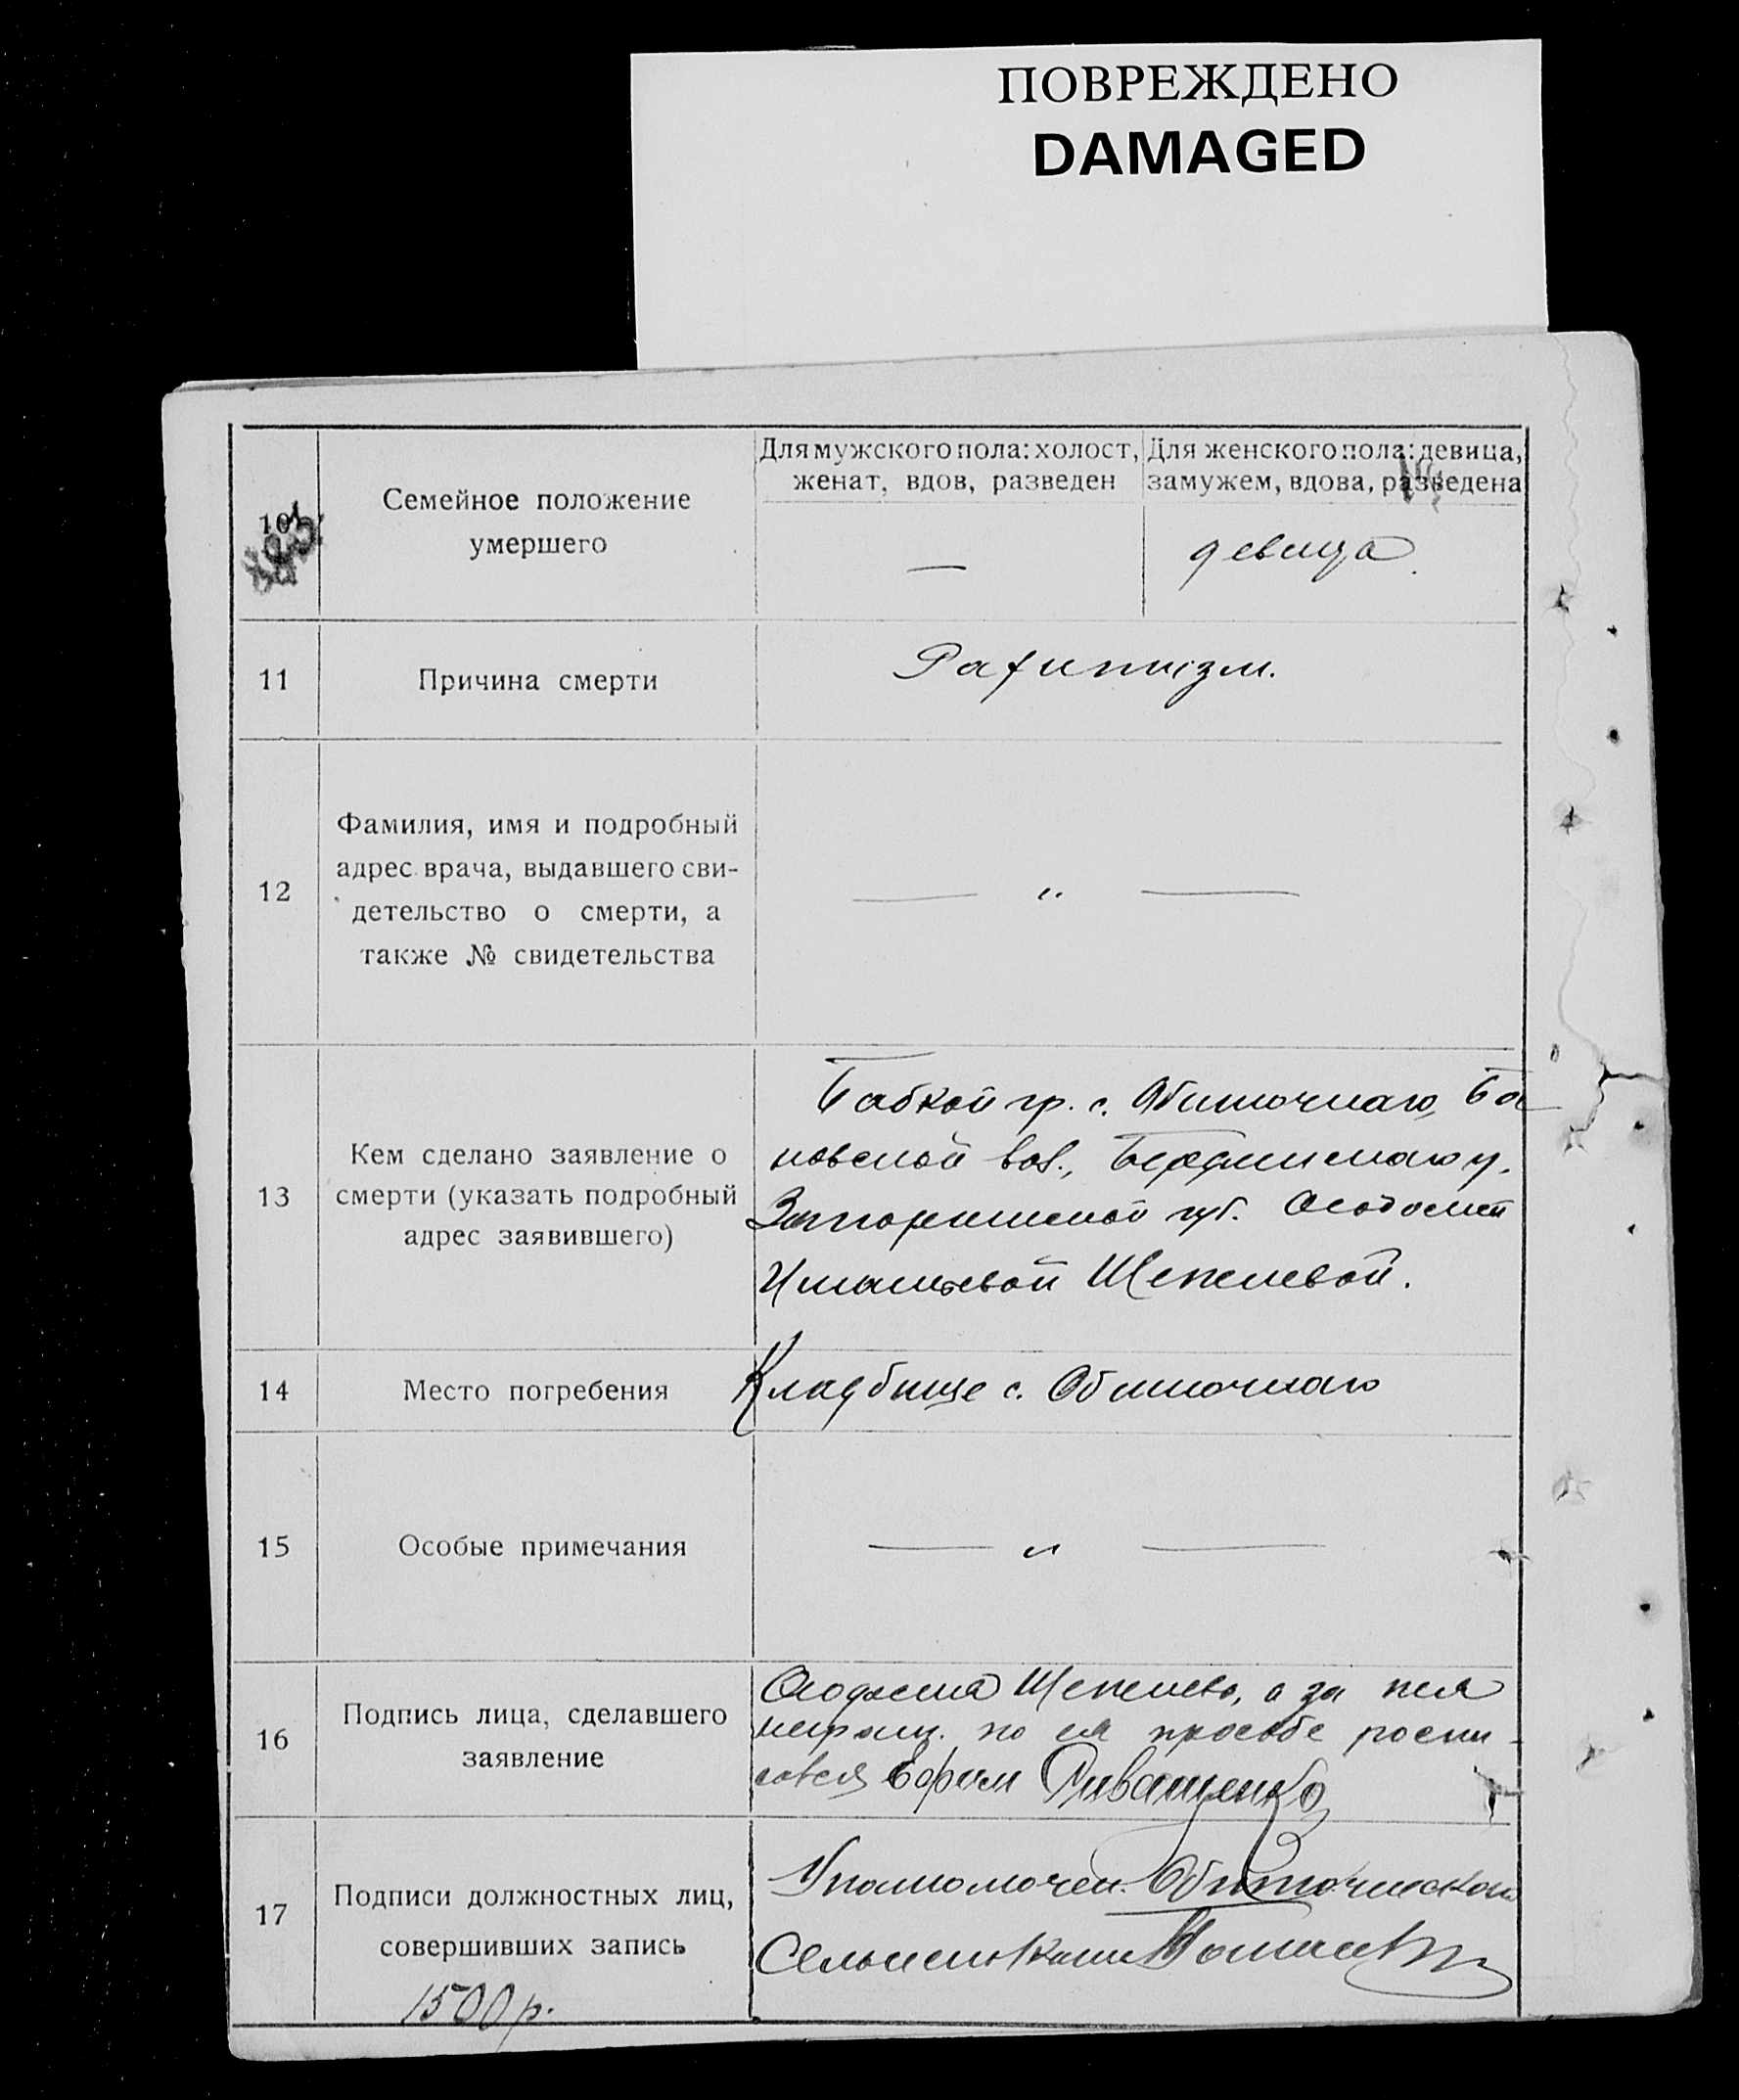 ПОВРЕЖДЕНО
DAMAGED
10
Семейное положение
умершего
Для мужского пола: холост,
женат, вдов, разведен
Для женского пола: девица,
замужем, вдова, разведена
—
девица
11
Причина смерти
12
Фамилия, имя и подробный
адрес врача, выдавшего сви-
детельство о смерти, а
также № свидетельства
— „ —
13
Кем сделано заявление о
смерти (указать подробный
адрес заявившего)
Бабкой гр. с. Обиточнаго, Ба
новской вол., Бердянскаго у.
Запорожской губ.
Щепелевой.
14
Место погребения
Кладбище с. Обиточнаго
15
Особые примечания
— „ —
16
Подпись лица, сделавшего
заявление
Щепелева, а за нея
неграм. по ея просьбе роспи-
сался Ефим
17
Подписи должностных лиц,
совершивших запись
Уполномочен. Обиточнскаго
1500 р.